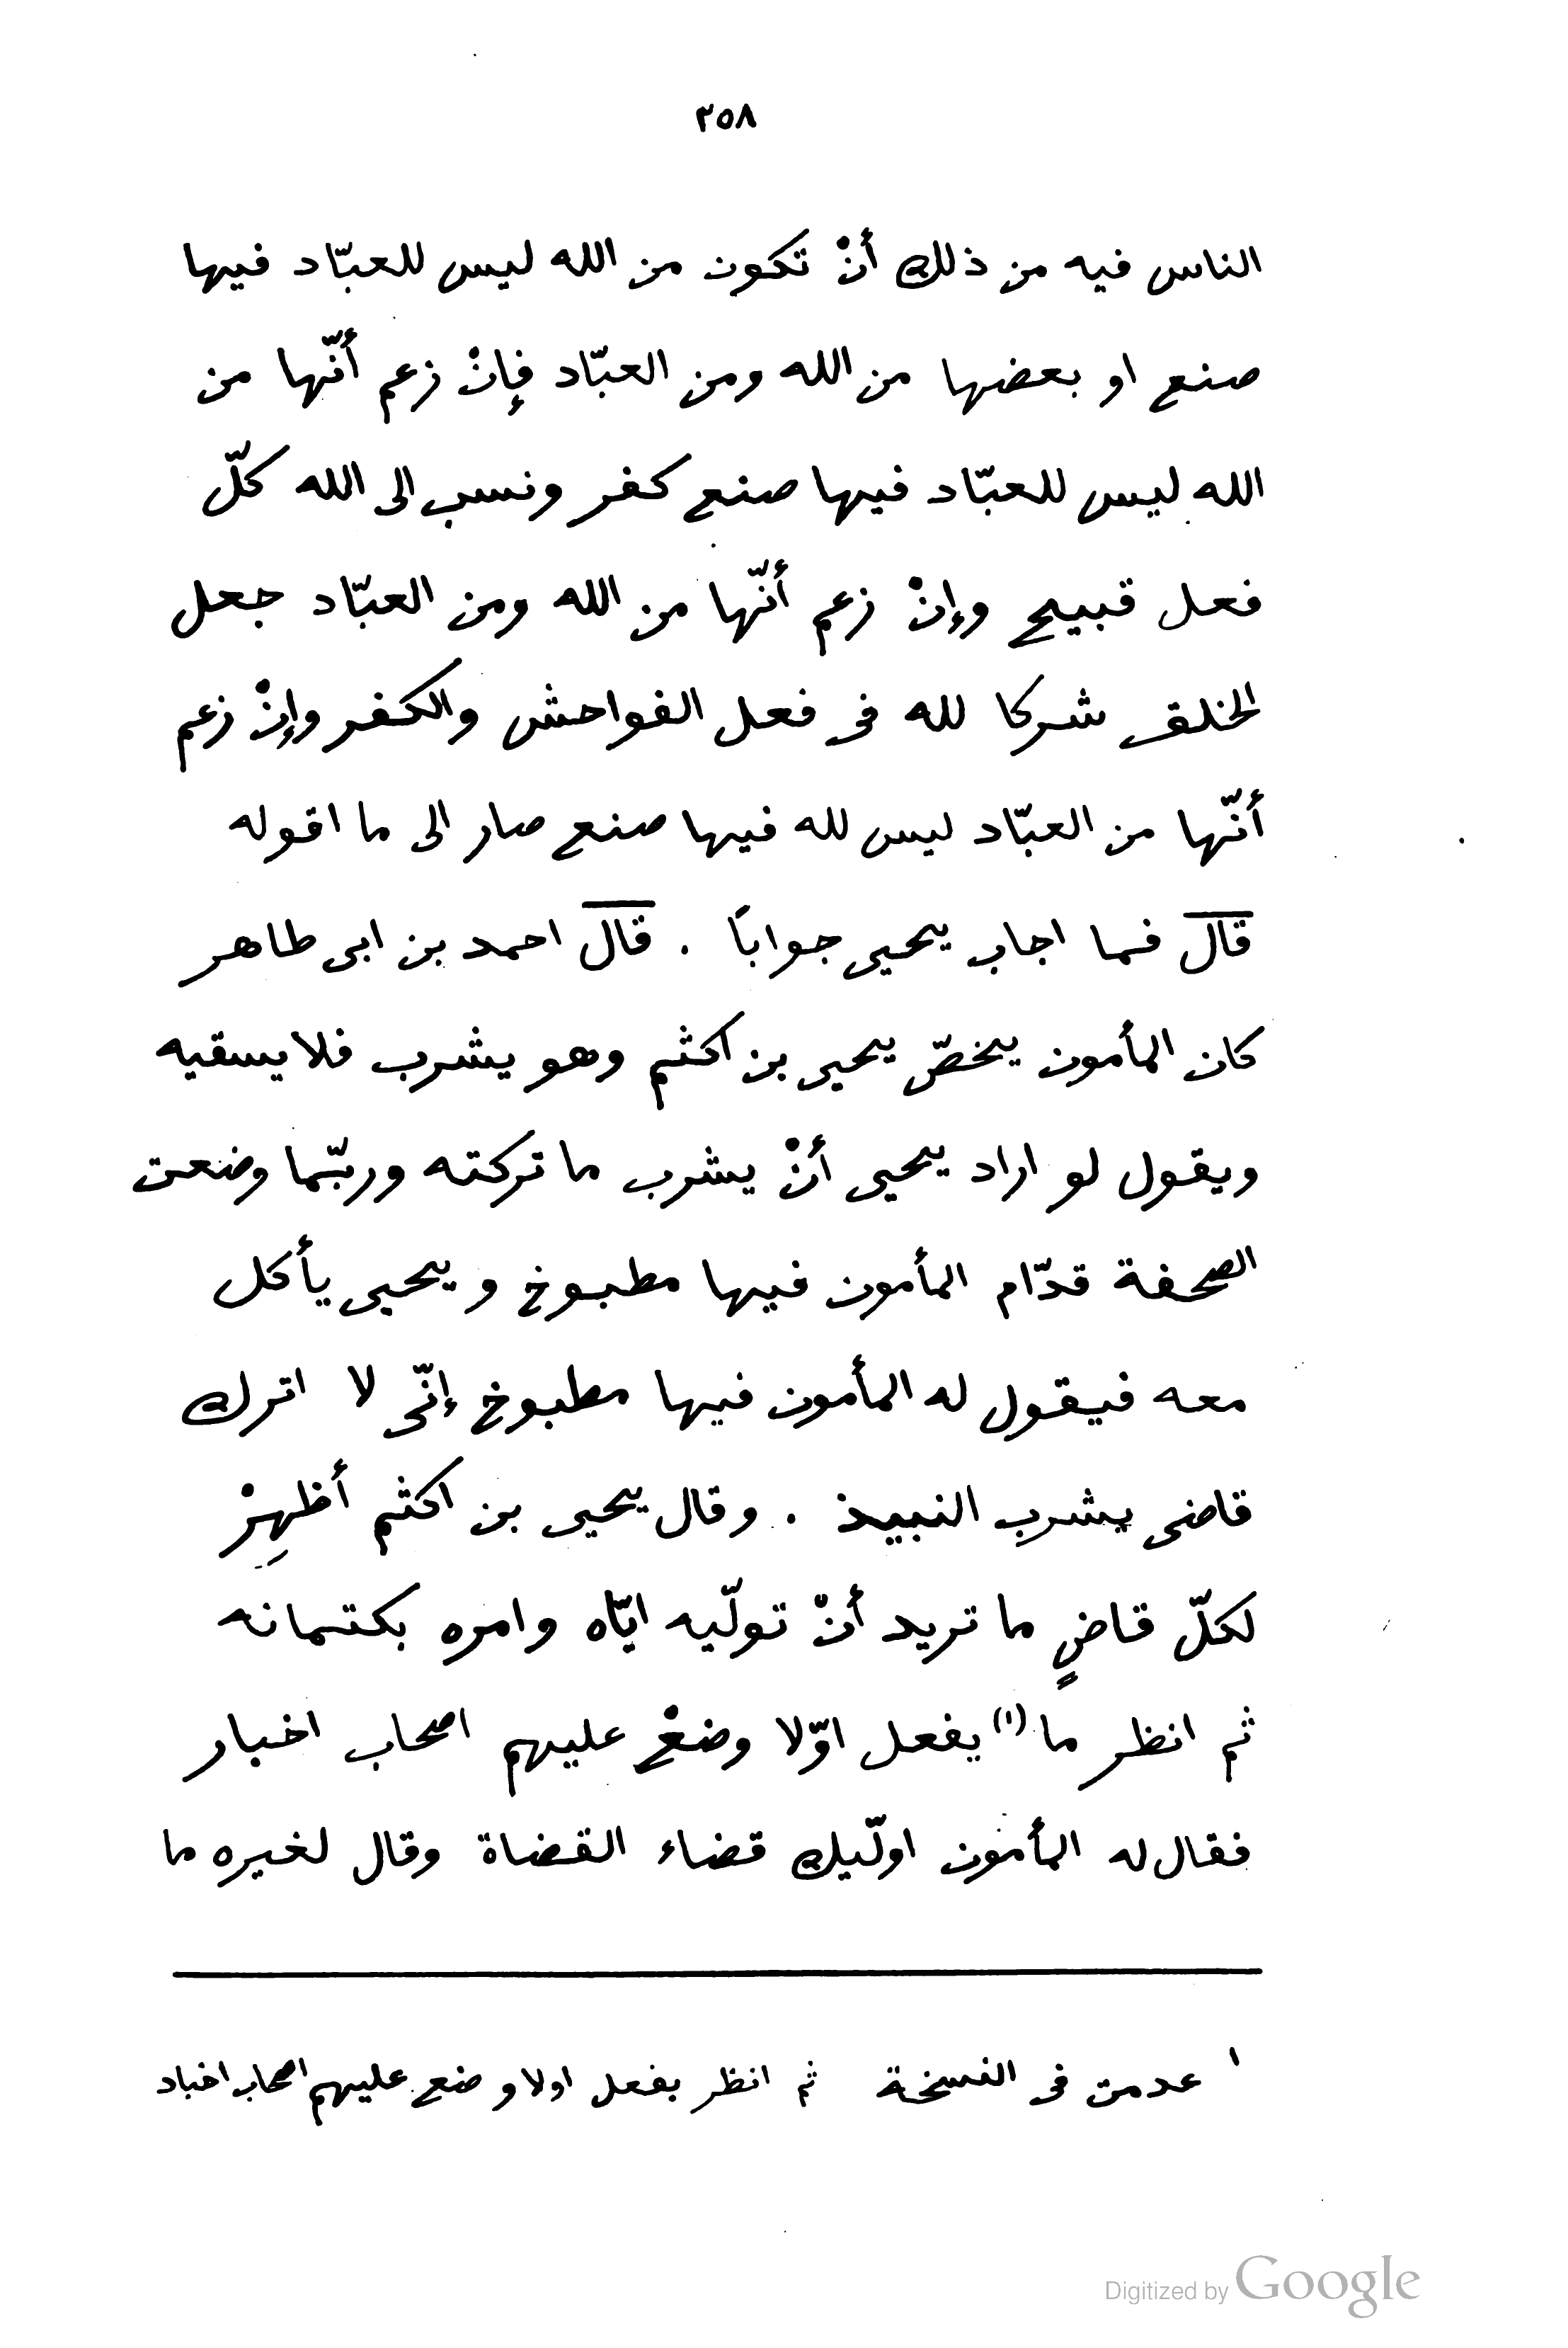 ٢٥٨
الناس فيه من ذلك أنْ تكون من الله ليس للعبّاد فيها
صنع او بعضها من الله ومن العبّاد فإنْ زعم أنّها من
الله ليس للعبّاد فيها صنع كفر ونسب الى الله كلّ
فعل قبيح وإنْ زعم أنّها من الله ومن العبّاد جعل
الخلق شركا لله فى فعل الفواحش والكفر وإنْ زعم
أنّها من العبّاد ليس لله فيها صنع صار الى ما اقوله
قال فما اجاب يحيى جوابًا . قال احمد بن ابى طاهر
كان المأمون يخصّ يحيى بن اكثم وهو يشرب فلا يسقيه
ويقول لو اراد يحيى أنْ يشرب ما تركته وربّما وضعت
الصحفة قدّام المأمون فيها مطبوخ ويحيى يأكل
معه فيقول له المأمون فيها مطبوخ إنّى لا اترك
قاضى يشرب النبيذ . وقال يحيى بن اكثم أظهِرْ
لكلّ قاضٍ ما تريد أنْ تولّيه ايّاه وامره بكتمانه
ثم انظر ما (١) يفعل اوّلا وضعْ عليهم اصحاب اخبار
فقال له المأمون اولّيك قضاء القضاة وقال لغيره ما
١ عدمت فى النسخة ثم انظر بفعل اولا وضع عليهم اصحاب اخباد
Digitized by Google